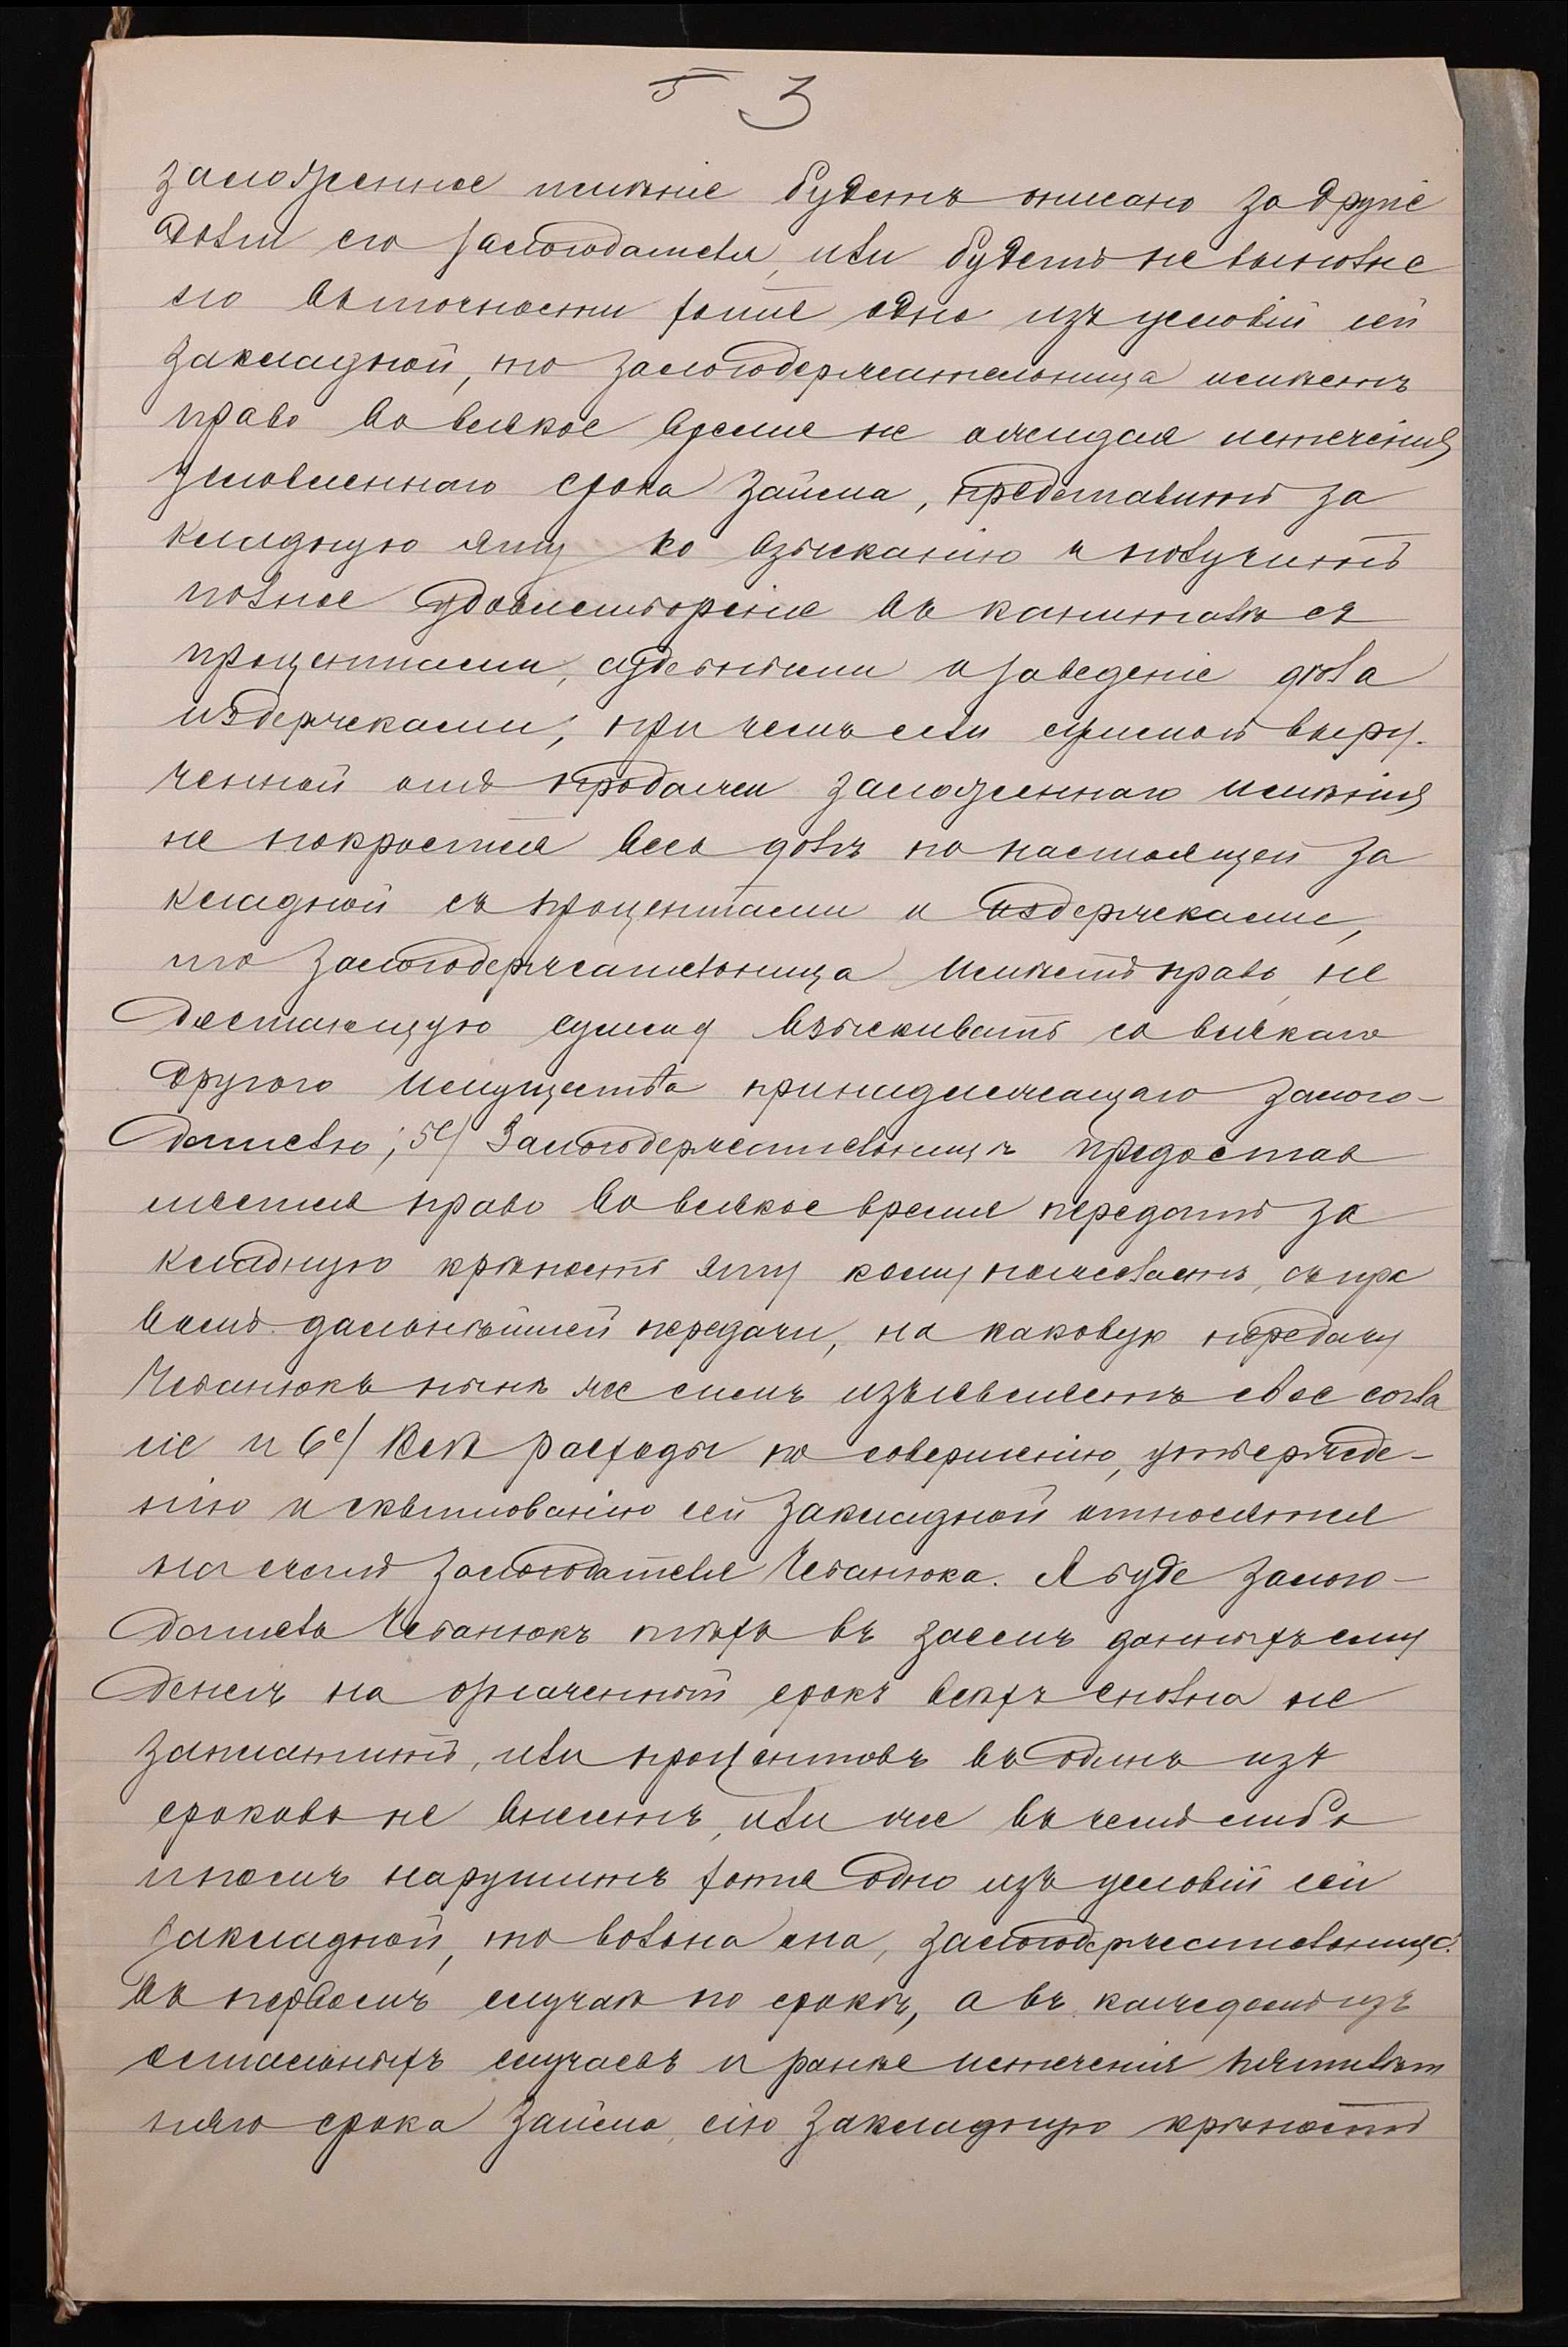 3
заложенное имѣніе будетъ описано за другіе
долги его залогодателя, или будетъ не выполне
но въ точности хотя одно изъ условій сей
закладной, то залогодержательница имѣетъ
право во всякое время не ожидая истеченія
условленнаго срока займа, представить за
кладную эту ко взысканію и получить
полное удовлетвореніе въ капиталѣ съ
процентами, судебными и за веденіе дѣла
издержками, при чемъ если суммой выру-
ченной отъ продажи заложеннаго имѣнія
не покроется весь долгъ по настоящей за
кладной съ процентами и издержками,
то залогодержательница имѣетъ право не
достающую сумму взыскивать со всякаго
другого имущества принадлежащаго залого-
дателю; 5е/ Залогодержательницѣ предостав
ляется право во всякое время передать за
кладную крѣпость эту кому пожелаетъ, съ пра
вомъ дальнѣйшей передачи, на каковую передачу
Чебанюкъ нынѣ же симъ изъявляетъ свое согла
сіе и 6е/ Всѣ расходы по совершенію, утвержде-
нію и сквитованію сей закладной относятся
на счетъ залогодателя Чебанюка. А буде залого-
датель Чебанюкъ тѣхъ въ заемъ данныхъ ему
денегъ на означенный срокъ всѣхъ сполна не
заплатитъ, или процентовъ въ одинъ изъ
сроковъ не внесетъ, или же въ чемъ либо
иномъ нарушитъ хотя одно изъ условій сей
закладной, то вольна она, залогодержательница
въ первомъ случаѣ по срокѣ, а въ каждомъ изъ
остальныхъ случаевъ и ранѣе истеченія пятилѣт
няго срока займа, сію закладную крѣпость